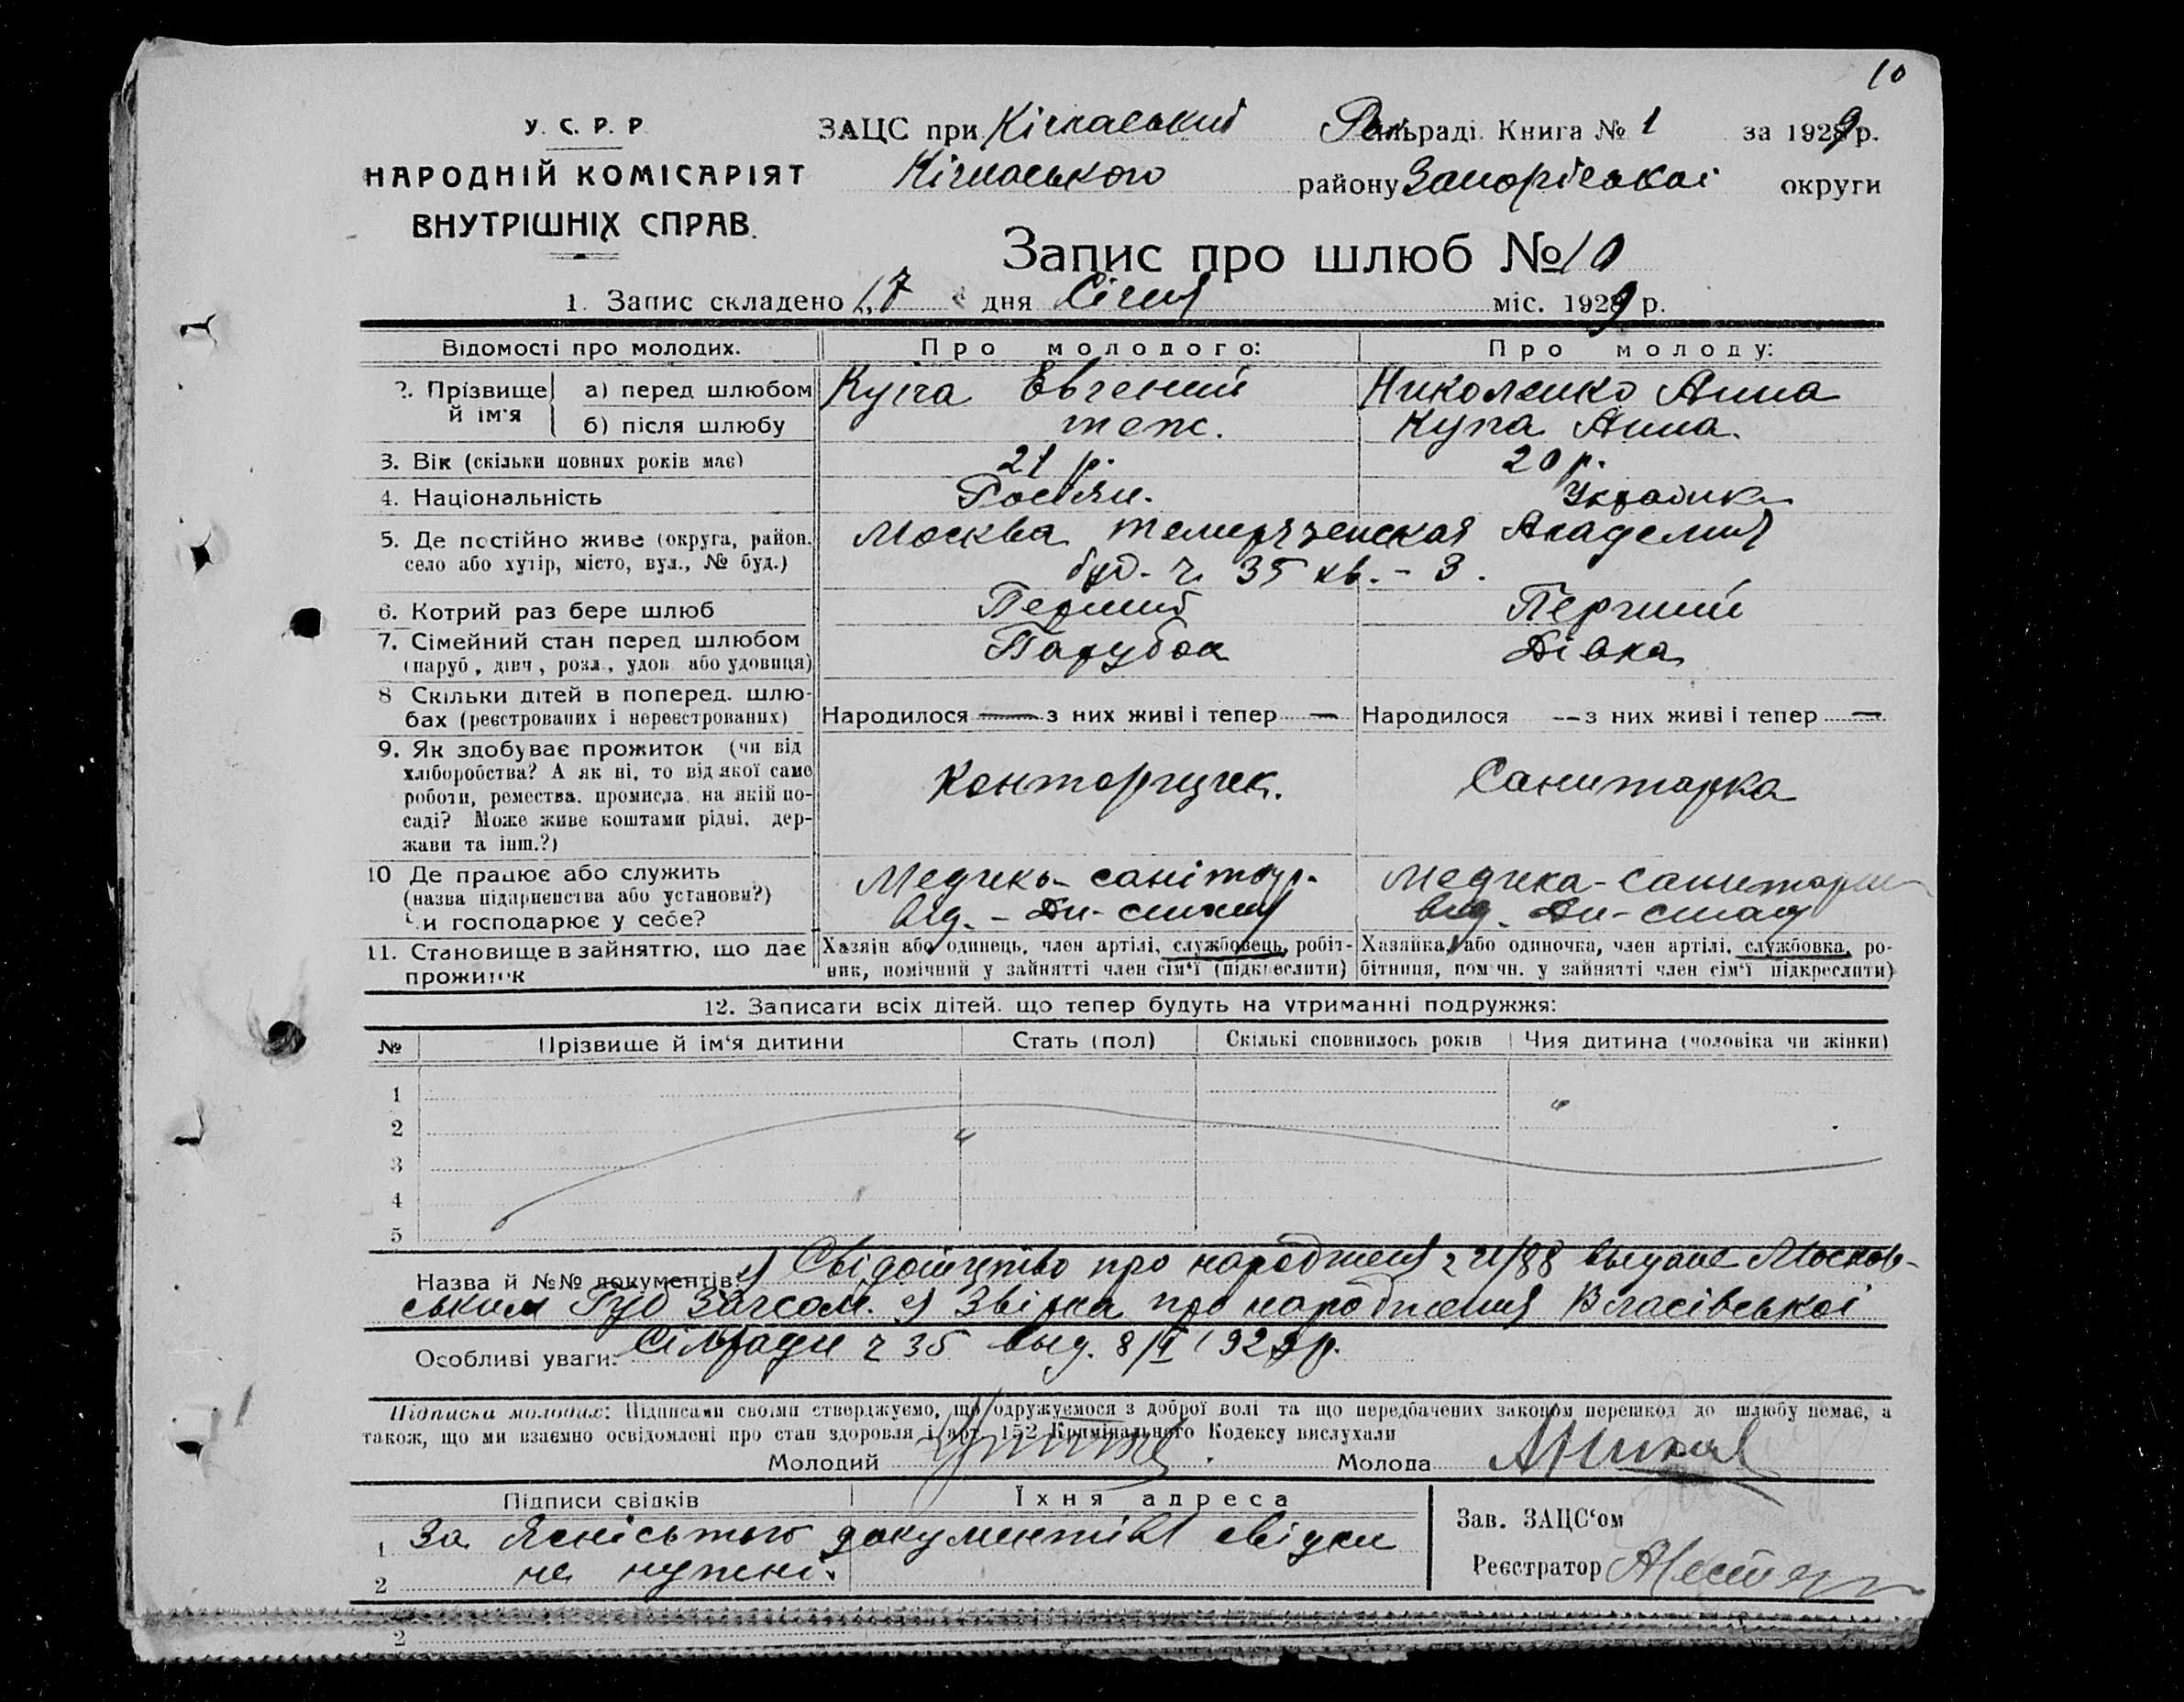 10
У. С. Р. Р.
НАРОДНІЙ КОМІСАРІЯТ
ВНУТРІШНІХ СПРАВ.
ЗАЦС при Кічкаський Рай сільраді. Книга № 1 за 1929 р.
Кічкаського району Запорізької округи
Запис про шлюб № 10
1. Запис складено 17 дня Січня міс. 1929 р.
Відомості про молодих. Про молодого: Про молоду:
2. Прізвище й ім'я а) перед шлюбом Евгений Николенко Анна
б) після шлюбу теж. Купа Анна.
3. Вік (скільки повних років має) 21 р. 20 р.
4. Національність Росіян. Українка
5. Де постійно живе (округа, район, Москва Темирязевская Академия
село або хутір, місто, вул., № буд.) буд. ч. 35 кв. - 3.
6. Котрий раз бере шлюб Перший Перший
7. Сімейний стан перед шлюбом Парубок Дівка
(паруб., дівч., розл., удов. або удовиця)
8 Скільки дітей в поперед. шлю-
бах (реєстрованих і нереєстрованих) Народилося — з них живі і тепер — Народилося — з них живі і тепер —
9. Як здобуває прожиток (чи від
хліборобства? А як ні, то від якої саме
роботи, ремества, промисла, на якій по- Конторщик. Санитарка
саді? Може живе коштами рідні, дер-
жави та інш.?)
10 Де працює або служить Медико-саніт Медика-санитарн
(назва підприємства або установи?) від.
Чи господарює у себе?
11. Становище в зайняттю, що дає Хазяїн або одинець, член артілі, службовець, робіт- Хазяйка, або одиночка, член артілі, службовка, ро-
прожиток ник, помічний у зайнятті член сім'ї (підкреслити) бітниця, помічн. у зайнятті член сім'ї підкреслити)
12. Записати всіх дітей, що тепер будуть на утриманні подружжя:
№ Прізвище й ім'я дитини Стать (пол) Скількі сповнилось років Чия дитина (чоловіка чи жінки)
1
2
3
4
5
Назва й №№ документів: Свідоцтво про народження выдане Москов-
ським Губ Загсом. Звірка про народження Власівської
Особливі уваги: Сільради ч 35 выд.
Підписка молодих: Підписами своїми стверджуємо, що одружуємося з доброї волі та що передбачених законом перешкод до шлюбу немає, а
також, що ми взаємно освідомлені про стан здоровля і арт. 152 Крпмінального Кодексу вислухали
Молодий Молода
Підписи свідків Їхня адреса
1 За документів свідки
2 не нужні.
Зав. ЗАЦС'ом
Реєстратор
2